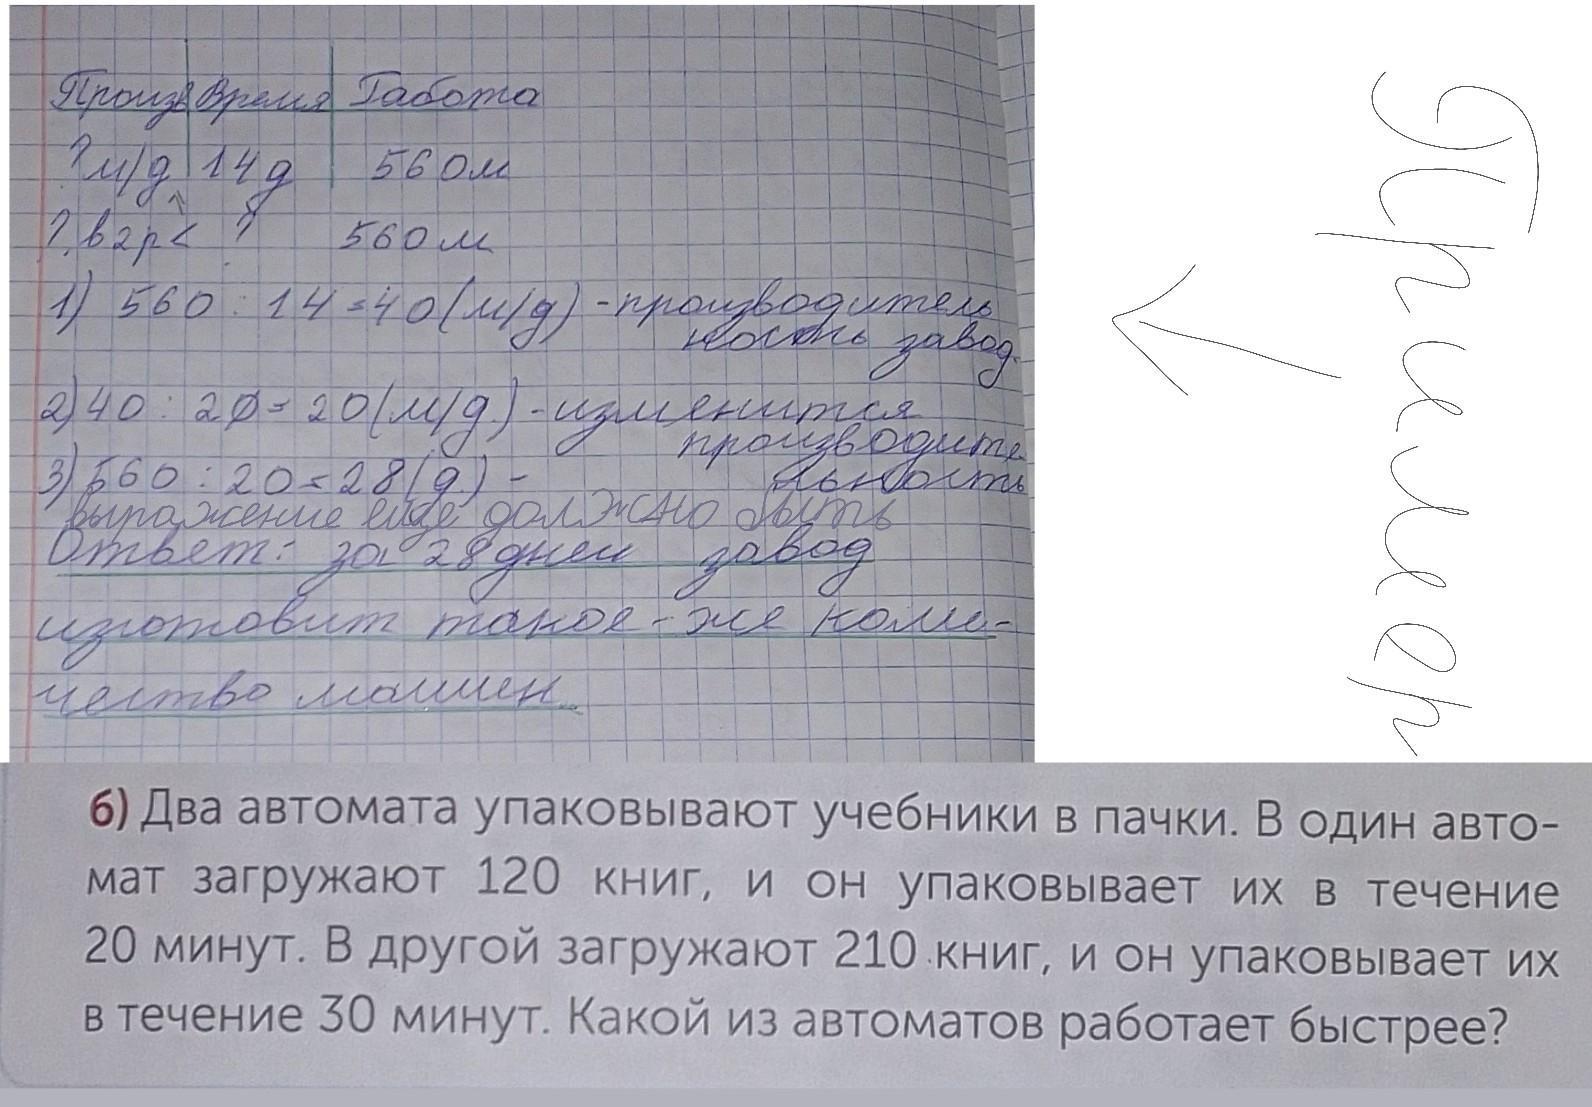 Произв Время Работа
? м/д 14 д 560 м
?, в 2 р < ? 560 м
1) 560 : 14 = 40 (м/д) - производитель
ность завод.
2) 40 : 2 = 20 (м/д.) - изменится
производите
льность
3) 560 : 20 = 28 (д.) -
выражение ещё должно быть
Ответ: за 28 дней завод
изготовит такое - же коли-
чество машин.
Пример
б) Два автомата упаковывают учебники в пачки. В один авто-
мат загружают 120 книг, и он упаковывает их в течение
20 минут. В другой загружают 210 книг, и он упаковывает их
в течение 30 минут. Какой из автоматов работает быстрее?